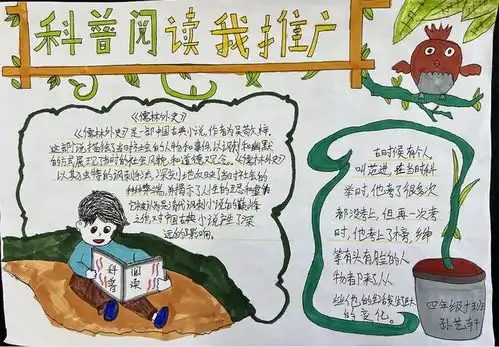 科普阅读我推广
《儒林外史》
《儒林外史》是一部中国古典小说，作者为吴敬梓。
这部小说描绘了当时社会的人物和事件以讽刺和幽默
的方式展现了当时的社会风貌和道德观念。《儒林外史》
以其独特的讽刺手法，深刻地反映了当时社会的
种种弊端，并揭示了人性的丑恶和
它被认为是清代讽刺小说的巅峰
之作，对中国古典小说产生了深
远的影响。
古时候有个人，
叫范进，在当时科
举时，他考了很多次
都没考上，但再一次考
时，他考上了个官，绅
等有头有脸的人
物都下来了，从
些他的生活发生巨大
的变化。
科普
阅读
四年级十班
孙艺轩